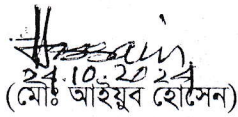 Hossain
24.10.2024
(মোঃ আইয়ুব হোসেন)